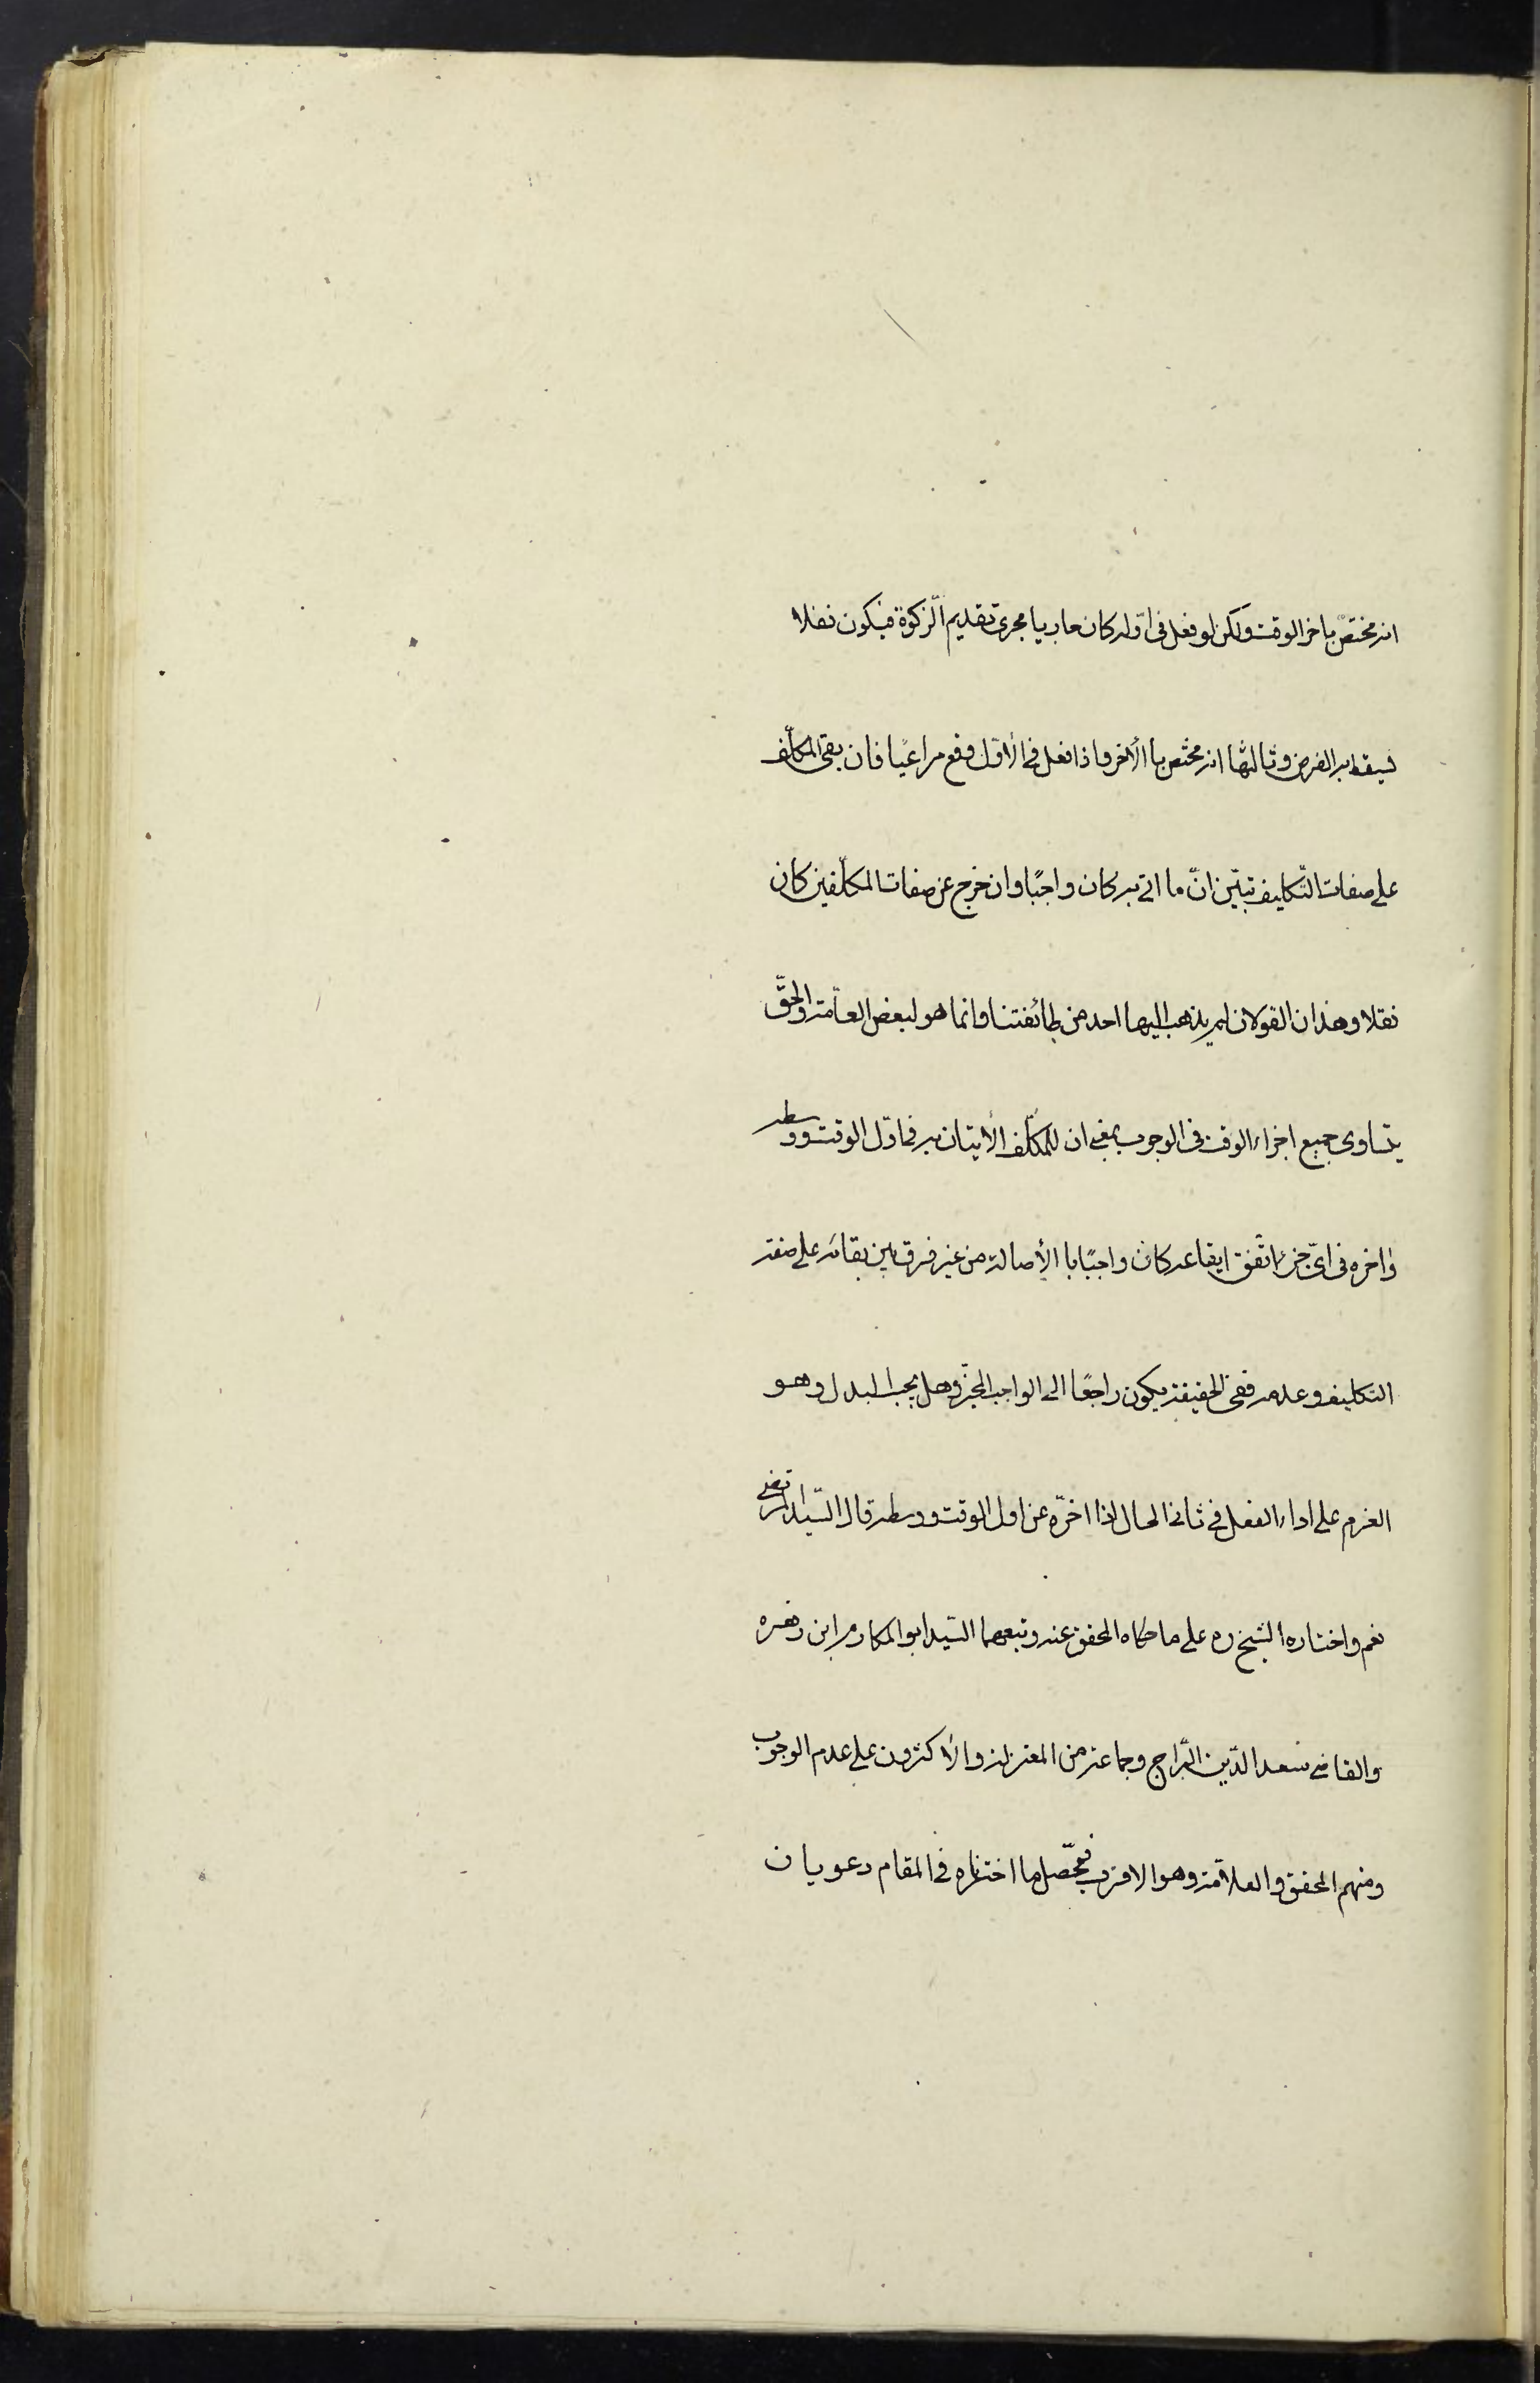 انه مختصّ باخر الوقت ولكن لو فعل فى اوّله كان جاريا مجرى تقديم الزّكوة فيكون نفلا
يسقط به الفرض وثالثها انه مختص باالأخر واذا فعل فى الأوّل وقع مراعيًا فان بقى المكلّف
على صفات التّكليف تبيّن انّ ما اتى به كان واجبًا وان خرج عن صفات المكلّفين كان
نفلا وهذان القولان لم يذهب اليها احد من طائفتنا وانما هو لبعض العامّة والحقّ
يتساوى جميع اجزاء الوقت فى الوجوب بمعنى ان للمكلّف الأيتان به فى اوّل الوقت ووسطه
واخره فى اىّ جزء اتّفق ايقاعه كان واجبًا با الأصالة من غير فرق بين بقائه على صفة
التكليف وعدمه ففى الحقيقة يكون راجعًا الى الواجب المخيّر وهل يجب البدل وهو
العزم على اداء الفعل فى ثانى الحال اذا اخّره عن اول الوقت ووسطه قال السّيد المرتضى
نعم واختاره الشيخ ره على ما حكاه المحقق عنه وتبعهما السّيد ابو المكارم ابن زهره
والقاضى سعد الدّين البّراج وجماعة من المعتزلة والأكثرون على عدم الوجوب
ومنهم المحقق والعلاّمة وهو الاقرب فيحصّل مما اخترناه فى المقام دعويان